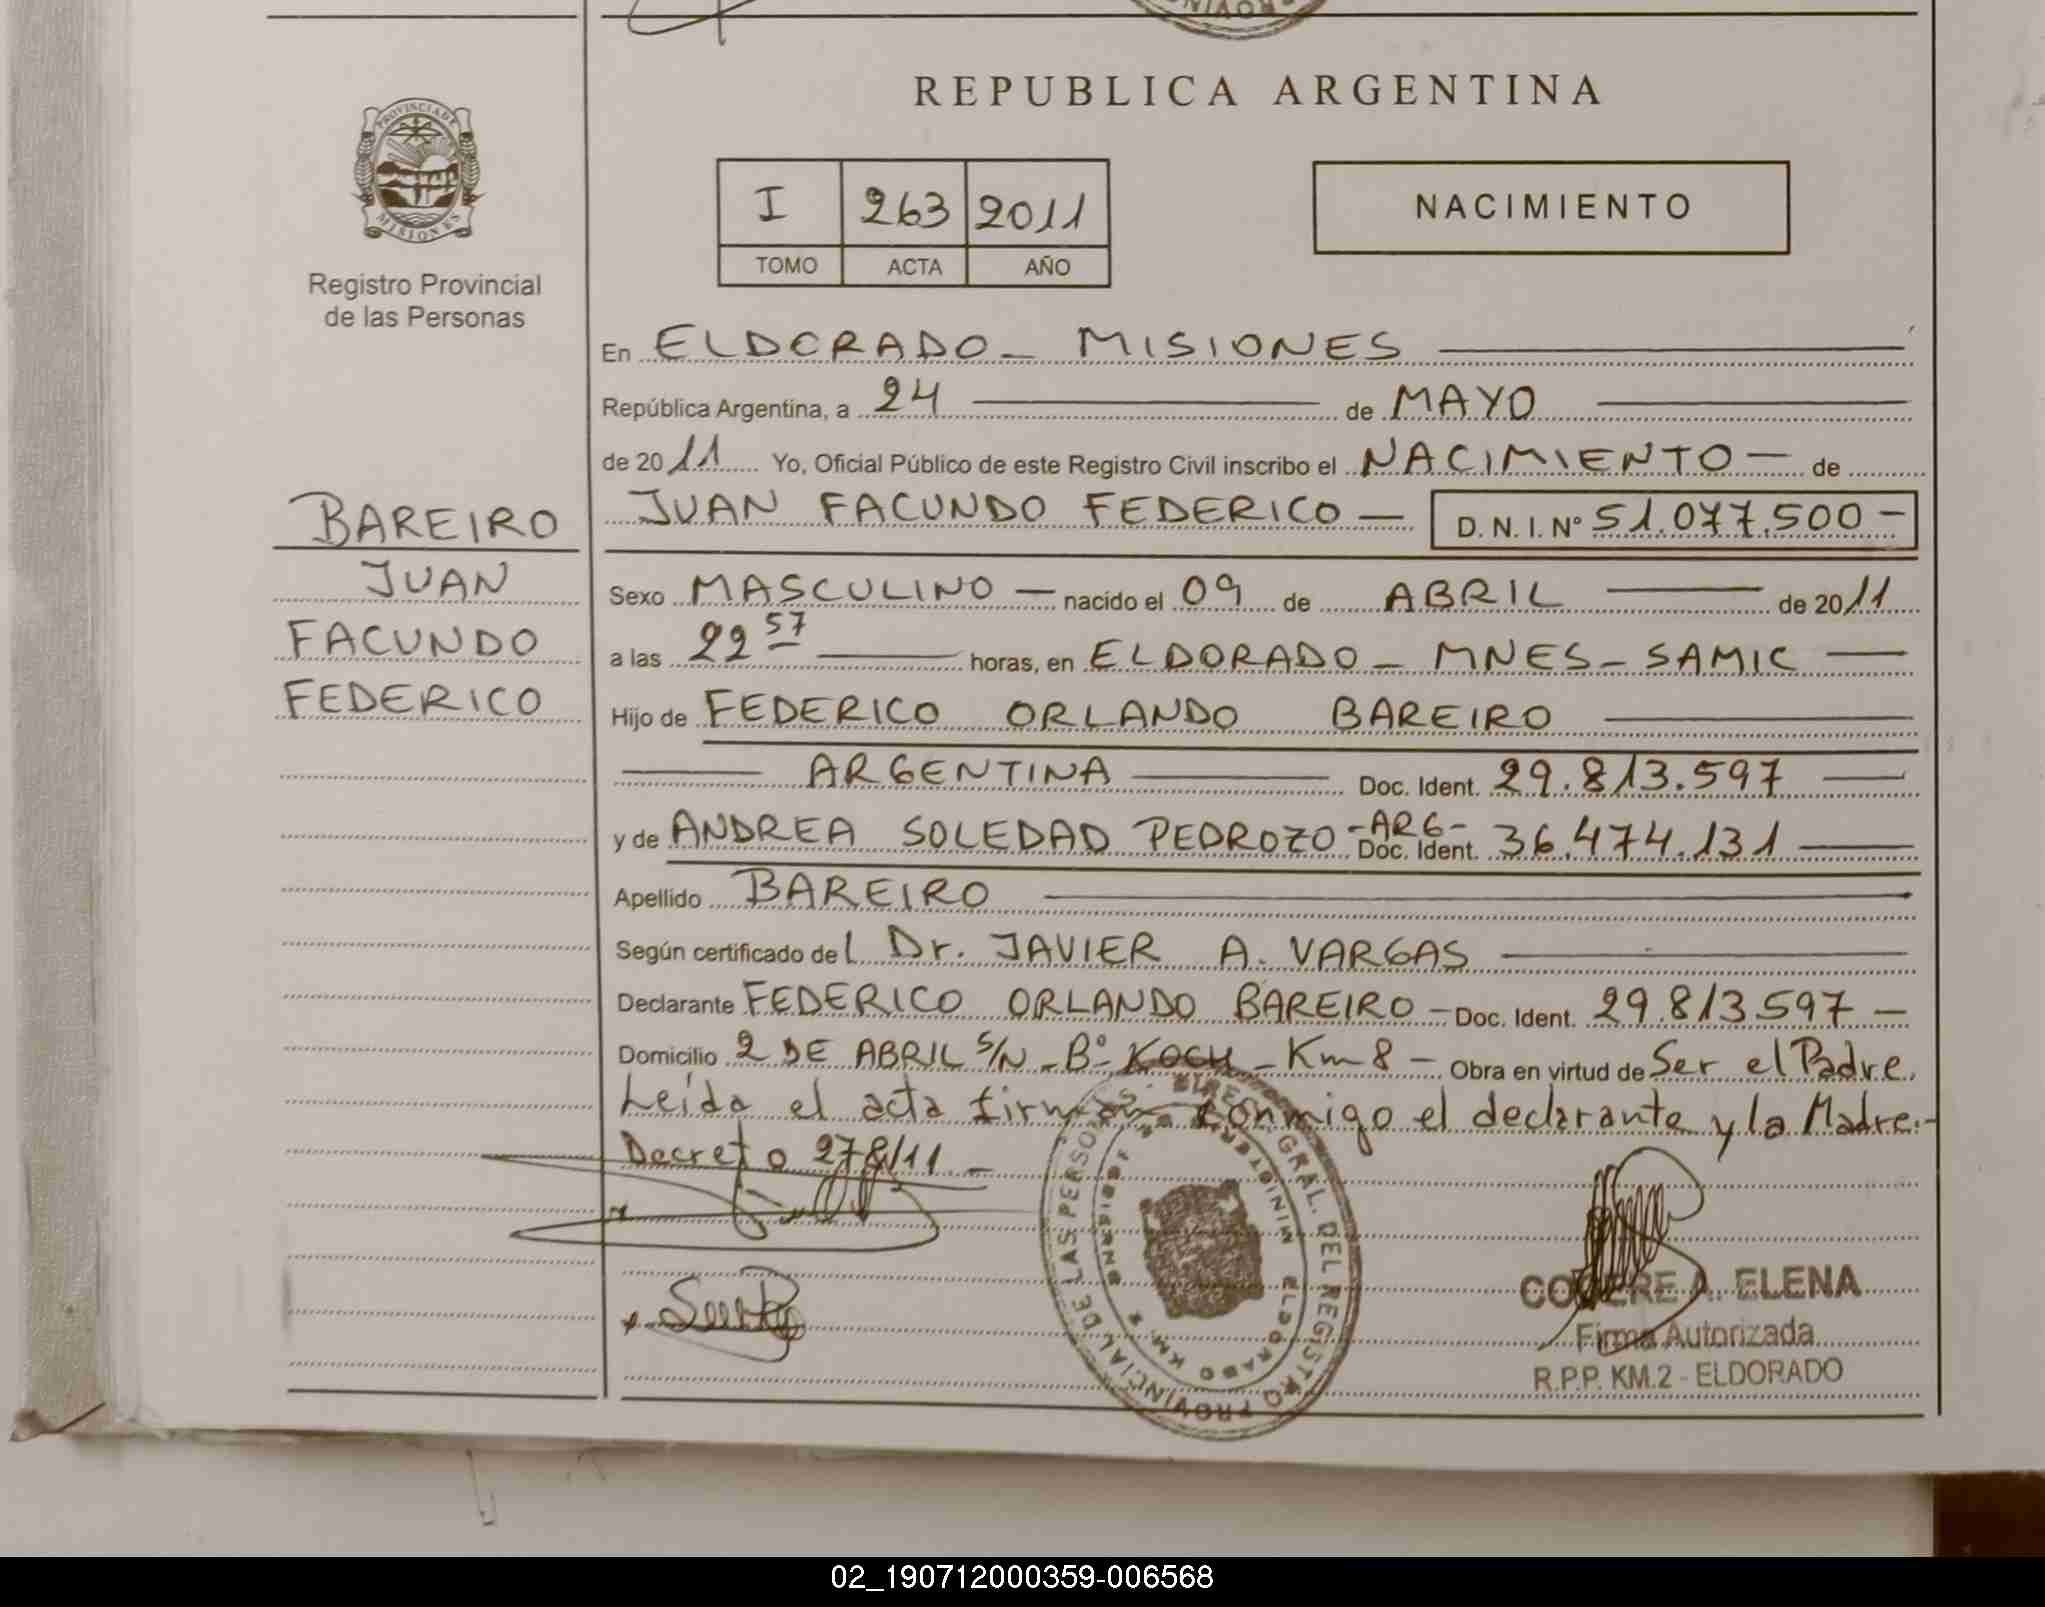 REPUBLICA ARGENTINA
PROVINCIA DE
MISIONES
Registro Provincial
de las Personas
I 263 2011
TOMO ACTA AÑO
NACIMIENTO
En ELDORADO - MISIONES
República Argentina, a 24 de MAYO
de 2011 Yo, Oficial Público de este Registro Civil inscribo el NACIMIENTO — de
JUAN FACUNDO FEDERICO — D.N.I. Nº 51.077.500 -
BAREIRO
JUAN
FACUNDO
FEDERICO
Sexo MASCULINO — nacido el 09 de ABRIL — de 2011
a las 22 57 — horas, en ELDORADO - MNES - SAMIC —
Hijo de FEDERICO ORLANDO BAREIRO —
— ARGENTINA — Doc. Ident. 29.813.597 —
y de ANDREA SOLEDAD PEDROZO -ARG- Doc. Ident. 36.474.131 —
Apellido BAREIRO —
Según certificado del Dr. JAVIER A. VARGAS —
Declarante FEDERICO ORLANDO BAREIRO - Doc. Ident. 29.813.597 -
Domicilio 2 DE ABRIL S/N - Bº KOCH - Km 8 - Obra en virtud de Ser el Padre.
Leída el acta firman conmigo el declarante y la Madre.-
Decreto 278/11 -
DIREC. GRAL. DEL REGISTRO PROVINCIAL DE LAS PERSONAS
ELDORADO KM 2
A. ELENA
Firma Autorizada
R.P.P. KM.2 - ELDORADO
02_190712000359-006568